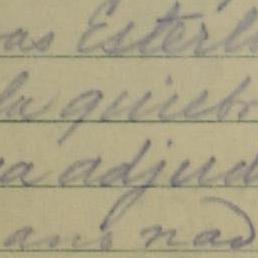 as Esterl
la quieb
a adjud
nad